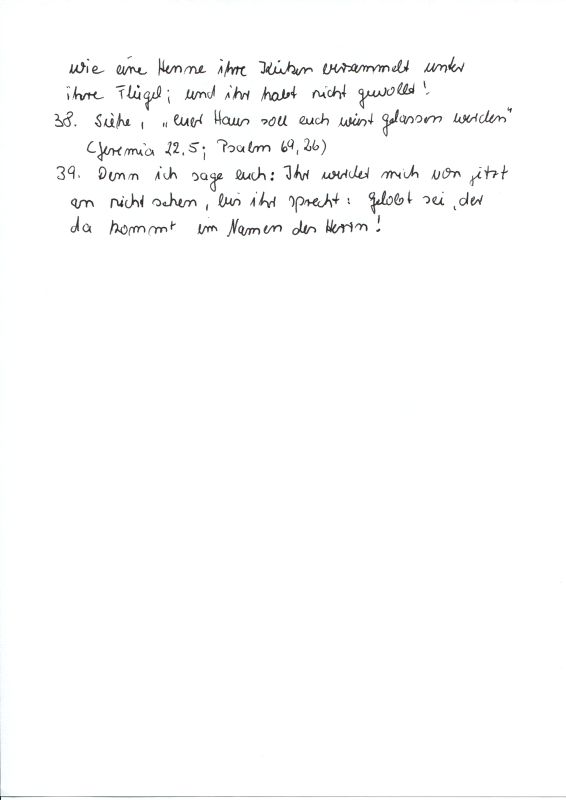 wie eine Henne ihre Küken versammelt unter
ihre Flügel; und ihr habt nicht gewollt!
38. Siehe, „euer Haus soll euch wüst gelassen werden"
(Jeremia 22,5; Psalm 69,26)
39. Denn ich sage euch: Ihr werdet mich von jetzt
an nicht sehen, bis ihr sprecht: Gelobt sei, der
da kommt im Namen des Herrn!